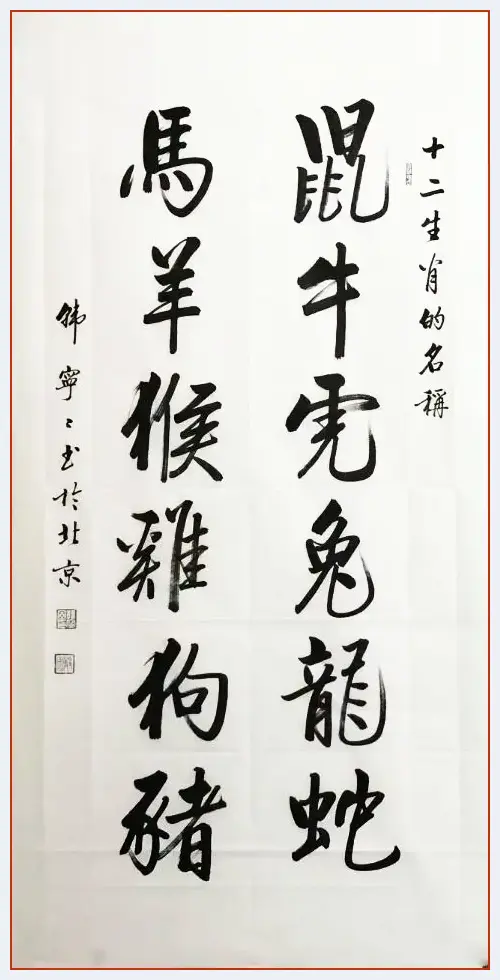 十二生肖的名稱
鼠牛虎兔龍蛇
馬羊猴雞狗豬
韩寧寧书於北京